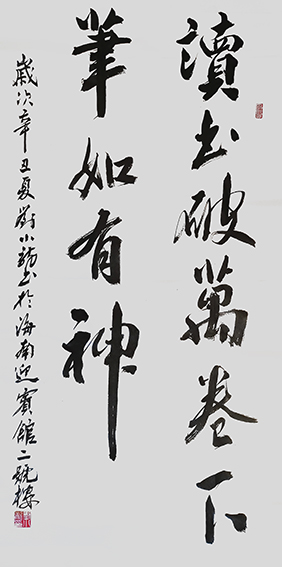 讀书破萬卷下
筆如有神
歲次辛丑夏劉小龍书於海南迎賓館二號樓